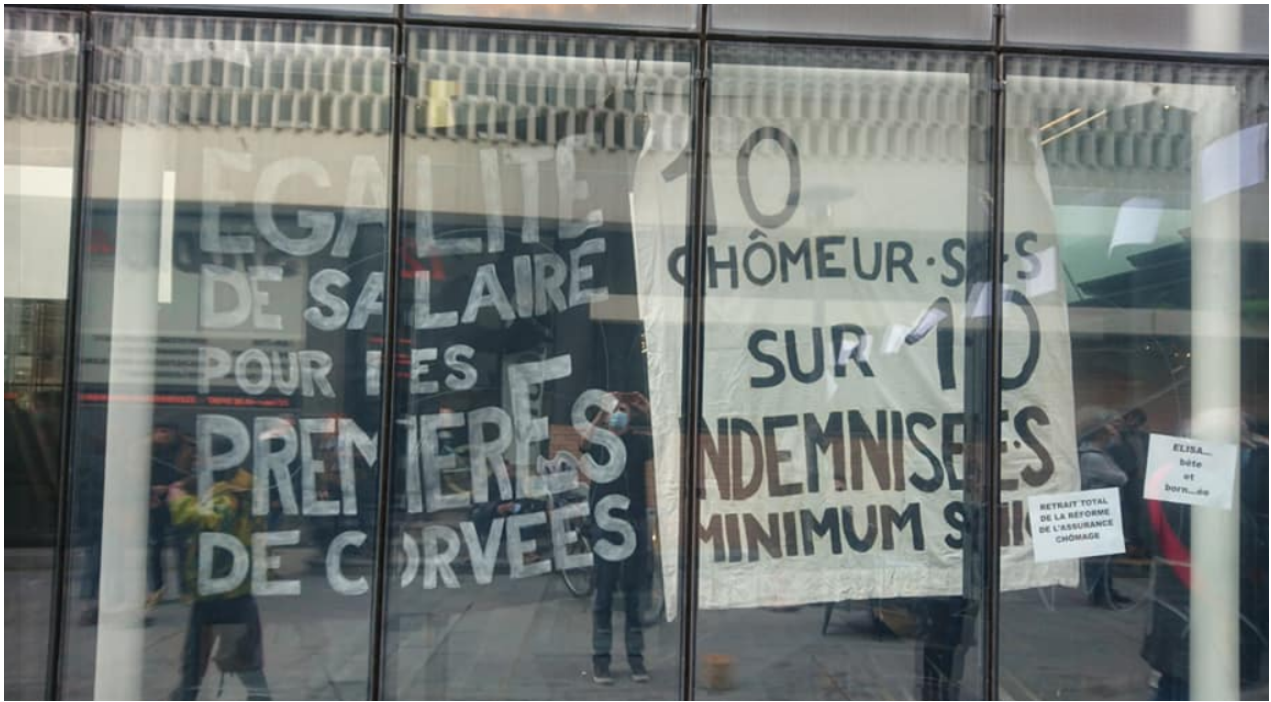 EGALITE
DE SALAIRE
POUR LES
PREMIERES
DE CORVEES
10
CHÔMEUR·SES
SUR 10
INDEMNISÉE·S
MINIMUM SMIC
RETRAIT TOTAL
DE LA RÉFORME
DE L'ASSURANCE
CHÔMAGE
ELISA...
bête
et
born...ée